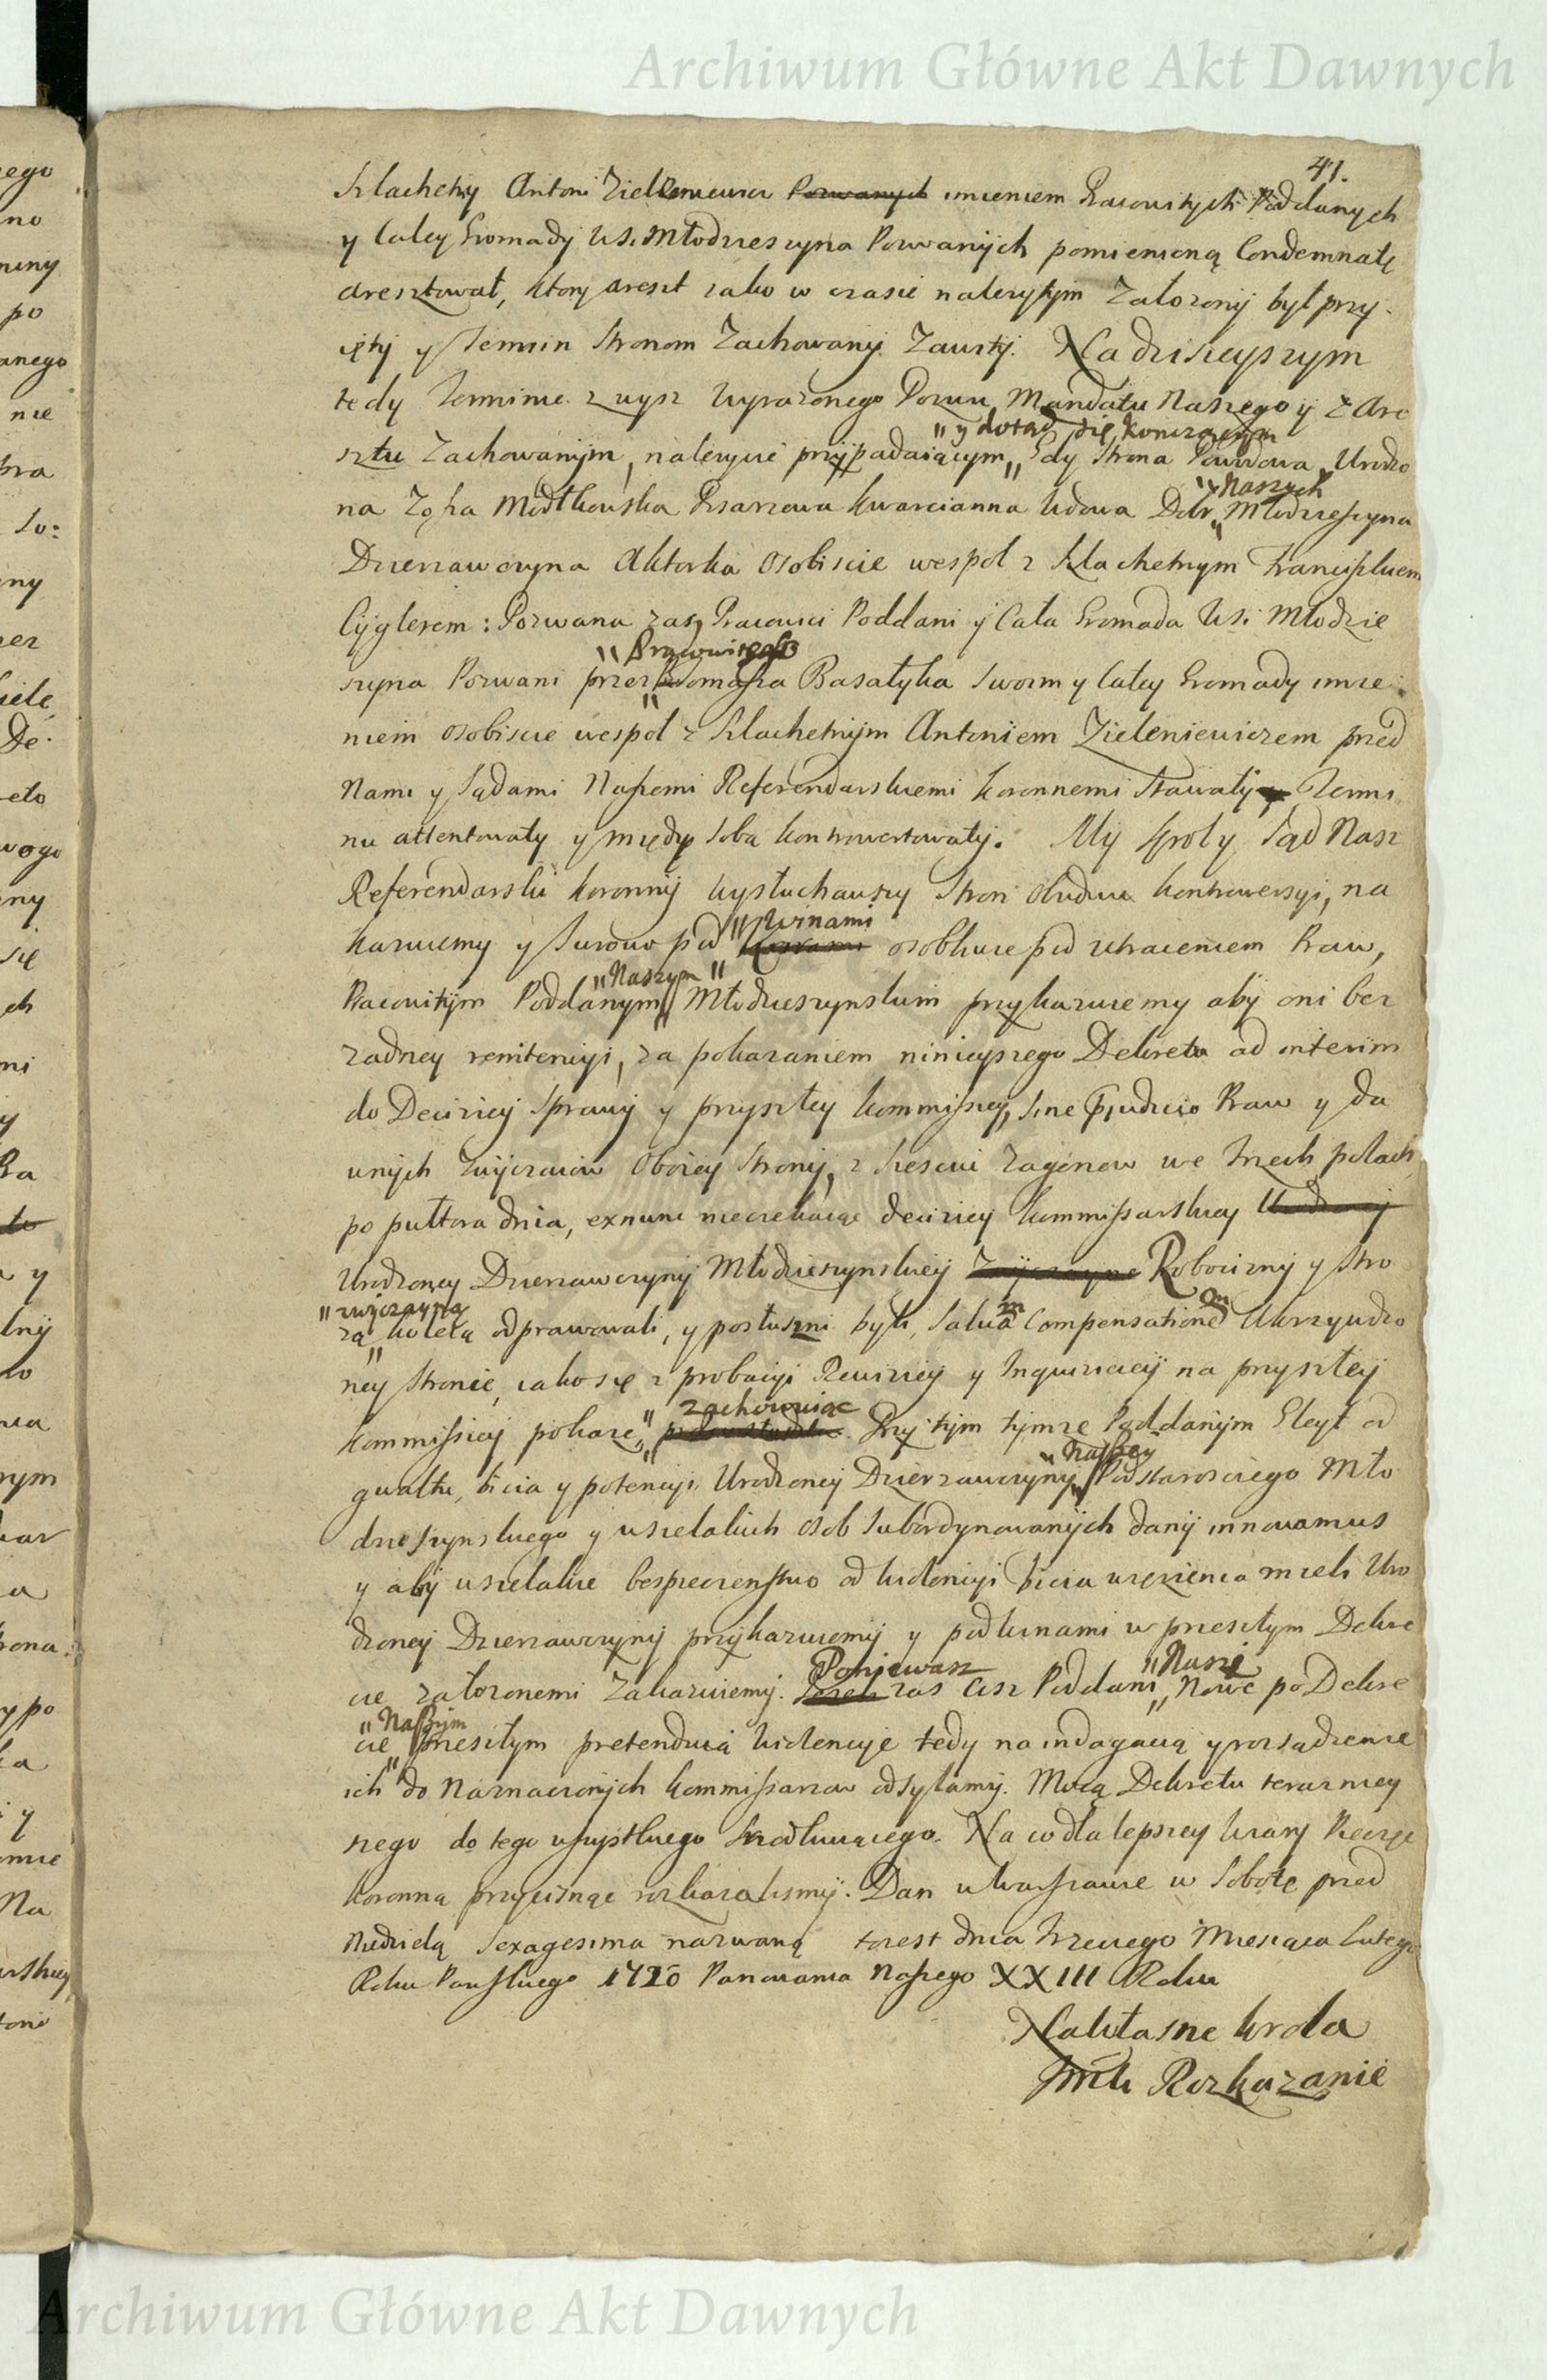 Archiwum Główne Akt Dawnych
41.
Szlachetny Antoni Zieleniewicz Pozwanych imieniem Pracowitych Poddanych
y Całey Gromady Wsi Młodzieszyna Pozwanych pomienioną Condemnatę
aresztował, ktory areszt iako w czasie nalezytym Załozony był przy-
ięty y Termin Stronom Zachowany Zawity. Na dzisieyszym
tedy Terminie z wysz wyrazonego Pozwu Mandatu Naszego y z Are
" y dotąd się konczącym
sztu Zachowanym, nalezycie przypadaiącym „ Gdy Strona Powodowa Urodzo
" Naszych
na Zofia Modlkowska Pisarzowa Kwarcianna Wdowa Dobr „ Młodzieszyna
Dzierzawczyna Aktorka Osobiscie wespoł z Szlachetnym Franciszkiem
Cyglerem: Pozwana zas Pracowici Poddani y Cała Gromada Wsi Młodzie
" Pracowitego
szyna Pozwani przez Tomasza Basałyka Swoim y całey Gromady imie
niem osobiscie wespoł z Szlachetnym Antoniem Zieleniewiczem przed
Nami y Sądami Naszemi Referendarskiemi Koronnemi Stawały, Termi
nu attentowały y między Sobą kontrowertowały. My Kroly Sąd Nasz
Referendarski Koronny Wysłuchawszy Stron Obudwu Kontrowersyi, na
" Winami
kazuiemy y Surowo pod osobliwie pod utraceniem Praw,
" Naszym "
Pracowitym Poddanym Młodzieszynskim przykazuiemy aby oni bez
zadney renitencyi, za pokazaniem ninieyszego Dekretu ad interim
do Deciziey Sprawy y przyszłey Kommissiey, Sine Pjudicio Praw y da
wnych Zwyczaiow Oboiey Strony, z Szesciu Zagonow we trzech polach
po pułtora dnia, exnunc nieczekaiąc decizicy Kommissarskiey
Urodzoney Dzierzawczyny Młodzieszynskiey Robocizny y Stro
" zwyczayną
zą koleią odprawowali, y posłuszni byli, Salua m Compensatione m Ukrzywdzo
ney Stronie, iako się z probacyi Rewiziey y Inquizicyi na przyszłey
zachowuiąc
Kommissiey pokaze, „ Przy tym tymze Poddanym Gleyt od
" Naszey
gwałtu, bicia y potencyi Urodzoney Dzierzawczyny „ Podstarosciego Mło
dzieszynskiego y wszelakich Osob Subordynowanych dany innovamus
y aby wszelakie bespieczenstwo od wiolencyi bicia więzienia mieli Uro
dzoney Dzierzawczyny przykazuiemy y pod winami w przeszłym Dekre
Poniewasz " Nasi
cie załozonemi Zakazuiemy. zas Cisz Poddani „ Nowe po Dekre
" Naszym
cie przeszłym pretenduią Wiolencye tedy na indagacią y rozsądzenie
ich do Naznaczonych Kommissarzow odsyłamy. Mocą Dekretu teraznieÿ
szego do tego wszystkiego Szrodkuiącego. Na co dla lepszey Wiary Pieczęć
Koronną przycisnąc rozkazalismy. Dan w Warszawie w Sobotę przed
Niedzielą Sexagesima nazwaną toiest dnia trzeciego Miesiąca Lutego
Roku Panskiego 1720 Panowania Naszego XXIII Roku
Na Własne Krola
Jmci Rozkazanie
Archiwum Główne Akt Dawnych